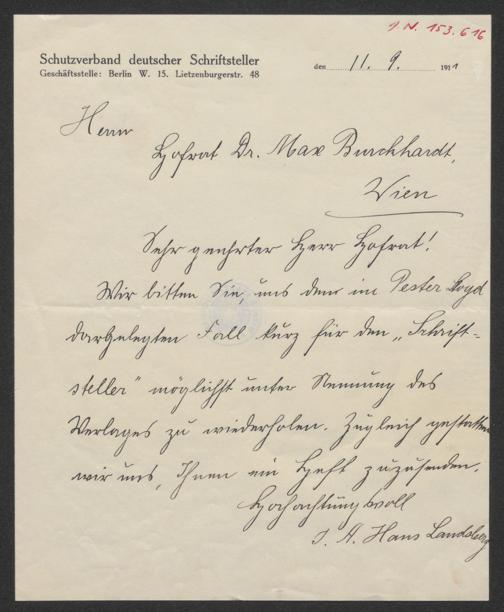 J. N. 153.616
Schutzverband deutscher Schriftsteller
Geschäftsstelle: Berlin W. 15. Lietzenburgerstr. 48
den 11. 9. 1911
Herrn
Hofrat Dr. Max Burchhardt,
Wien
Sehr geehrter Herr Hofrat!
Wir bitten Sie, uns den im Pester Lloyd
dargelegten Fall kurz für den „Schrift-
steller" möglichst unter Nennung des
Verlages zu wiederholen. Zugleich gestatten
wir uns, Ihnen ein Heft zuzusenden.
Hochachtungsvoll
I. A. Hans Landsberg